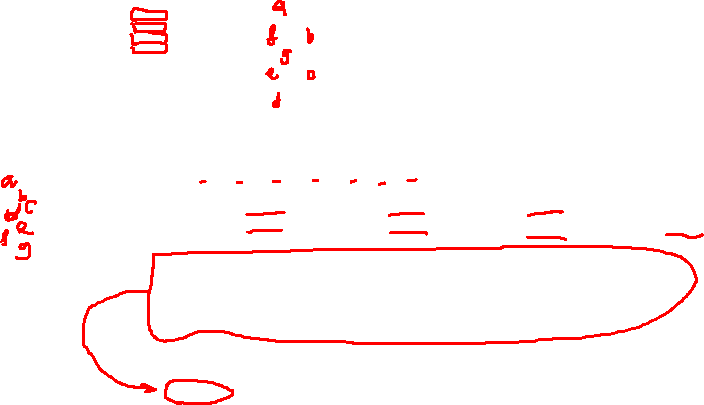 a
f b
g
e
d
a
b
c
d
e
f
g